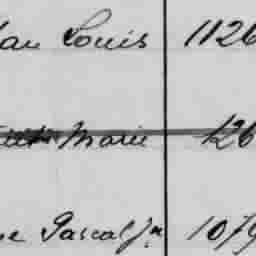 Louis 1126
Marie 126
Pascal Jr 1079